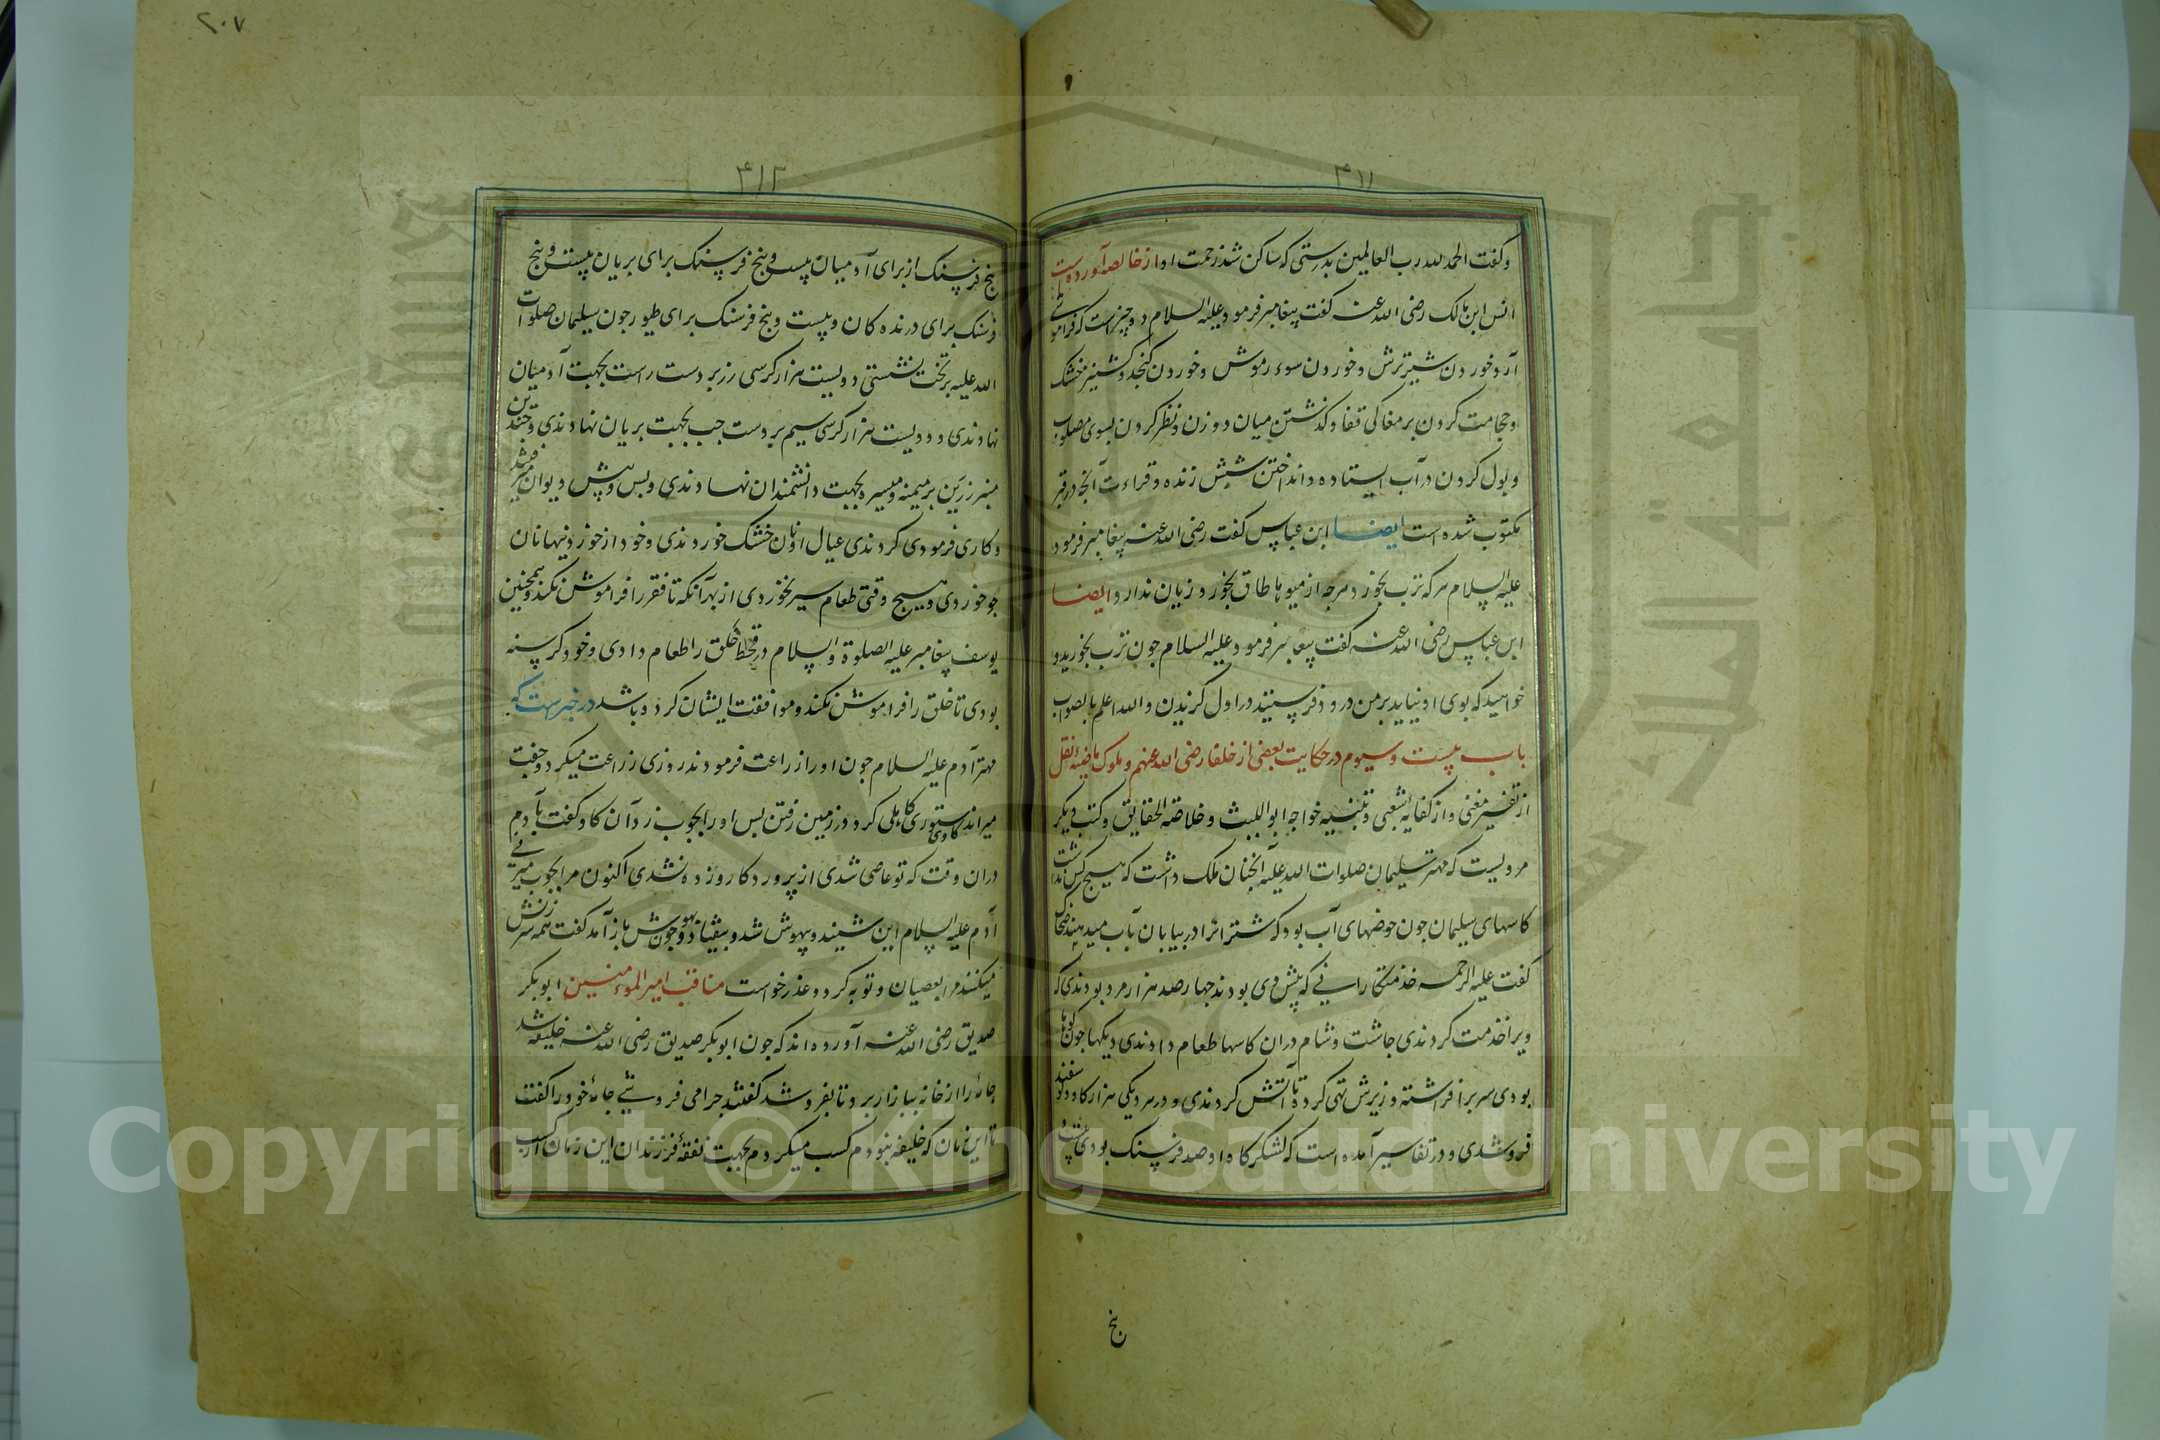 ۴۱۱
و گفت الحمد لله رب العالمین بدرستی که ساکن شد زحمت او از خالصه آورده است
انس ابن مالک رضی الله عنه گفت پیغامبر فرمود علیه السلام ده چیز است که فراموشی
آرد خوردن شیر ترش و خوردن سوء رموش و خوردن کنجد و کشنیز خشک
و حجامت کردن بر مغاکی قفا و گذشتن میان دو زن و نظر کردن بسوی مصلوب
و بول کردن در آب ایستاده و انداختن شپش زنده و قراءت آنچه در قبر
مکتوب شده است ایضا ابن عباس گفت رضی الله عنه پیغامبر فرمود
علیه السلام هر که ترب بخورد هرچه از میوه ها طاق بخورد زیان ندارد ایضا
ابن عباس رضی الله عنه گفت پیغامبر فرمود علیه السلام چون ترب بخورید و
خواهید که بوی او نیاید بر من درود فرستید در اول گزیدن و الله اعلم بالصواب
باب بیست و سیوم در حکایت بعضی از خلفا رضی الله عنهم و ملوک ماضیه نقل
از تفسیر مغنی و از کفایه شعبی و تنبیه خواجه ابو اللیث و خلاصة الحقایق و کتب دیگر
مرویست که مهتر سلیمان صلوات الله علیه آنچنان ملک داشت که هیچ کس نداشت
کاسهای سلیمان چون حوضهای آب بود که شتر انرا در بیابان آب میدهند
گفت علیه الرحمه خدمتکارانی که پیش وی بودند چهار صد هزار مرد بودندی که
ویرا خدمت کردندی چاشت و شام دران کاسها طعام دادندی دیکها چون کوها
بودی سر برافراشته و زیرش تهی کرده تا آتش کردندی و در هر دیکی هزار کاو و گوسفند
فرو شدی و در تفاسیر آمده است که لشکرگاه او صد فرسنگ بودی بیست و
پنج
۲۰۷
۴۱۲
پنج فرسنگ از برای آدمیان بیست و پنج فرسنگ برای پریان بیست و پنج
فرسنگ برای درنده کان و بیست و پنج فرسنگ برای طیور چون سلیمان صلوات
الله علیه بر تخت نشستی دویست هزار کرسی زر بر دست راست بجهت آدمیان
نهادندی و دویست هزار کرسی سیم بر دست چپ بجهت پریان نهادندی و چندین
منبر زرین بر میمنه و میسره بجهت دانشمندان نهادندی و پس و پیش دیوان
و کاری فرمودی کردندی عیال او نان خشک خوردندی و خود از خورد نیهانان
جو خوردی و هیچ وقتی طعام سیر نخوردی از بهر آنکه تا فقر را فراموش نکند همچنین
یوسف پیغامبر علیه الصلوة و السلام در قحط خلق را طعام دادی و خود گرسنه
بودی تا خلق را فراموش نکند و موافقت ایشان کرده باشد در خبرست که
مهتر آدم علیه السلام چون او را زراعت فرمودند روزی زراعت میکرد و جفت
میراند ستوری کاهلی کرد در زمین رفتن پس او را بچوب زد آن کاو گفت یا آدم
دران وقت که تو عاصی شدی از پروردکار زده نشدی اکنون مرا بچوب میزنی
آدم علیه السلام این شنید و بیهوش شد و بیفتاد و چون بهوش باز آمد گفت همه سرزنش
میکنند مرا بعصیان و توبه کرد و عذر خواست مناقب امیر المؤمنین ابو بکر
صدیق رضی الله عنه آورده اند که چون ابو بکر صدیق رضی الله عنه خلیفه شد
جامه را از خانه ببازار برد تا بفروشد گفتند چرا می فروشی جامه خود را گفت
تا این زمان که خلیفه نبودم کسب میکردم بجهت نفقه فرزندان این زمان از کسب
Copyright © King Saud University